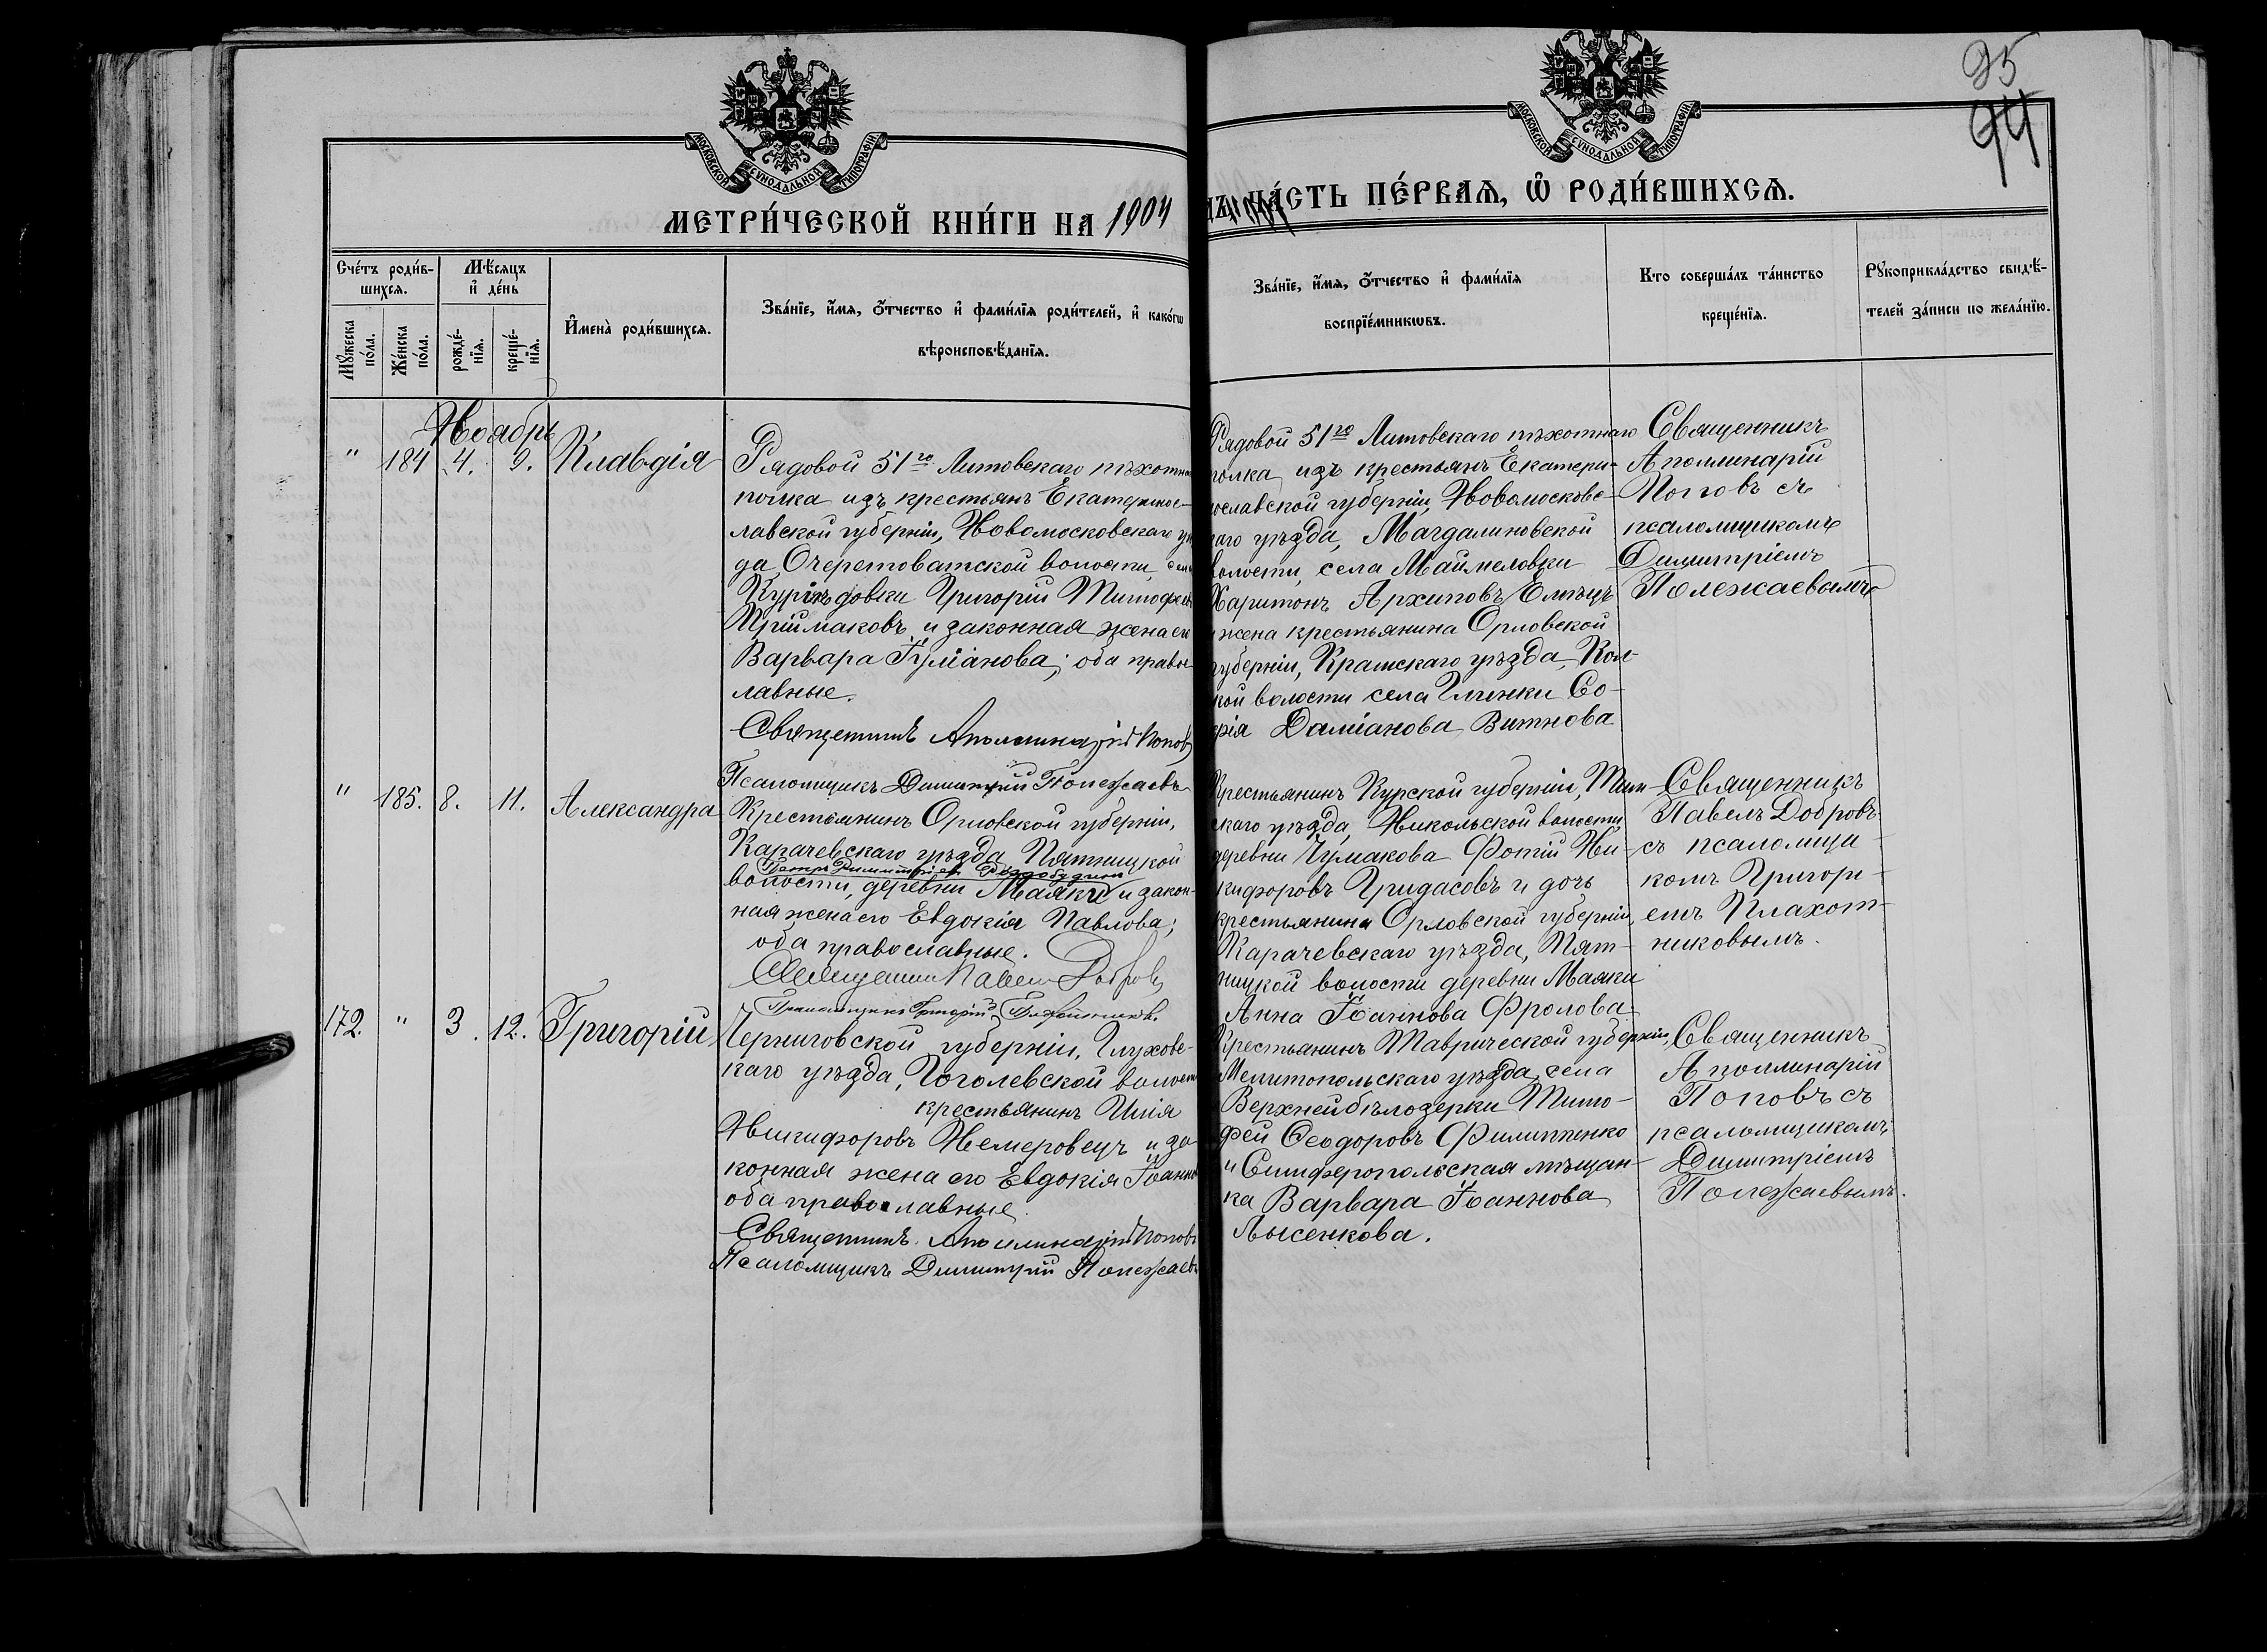 95
94
МОСКОВСКОЙ СѴНОДАЛЬНОЙ ТИПОГРАФІИ
МОСКОВСКОЙ СѴНОДАЛЬНОЙ ТИПОГРАФІИ
МЕТРИ́ЧЕСКОЙ КНИ́ГИ НА 1904
ЧА́СТЬ ПЕ́РВАЯ, Ѡ҆ РОДИ́ВШИХСЯ.
Сче́тъ роди́в-
шихся.
Мꙋ́жеска по́ла.
Же́нска по́ла.
Мѣ́сяцъ
и҆ де́нь
рожде́-
нїя.
креще́-
нїя.
И҆мена̀ роди́вшихся.
Зва́нїе, и҆́мя, ѻ҆́тчество и҆ фами́лїя роди́телей, и҆ како́гѡ
вѣроисповѣ́данїя.
Зва́нїе, и҆́мя, ѻ҆́тчество и҆ фами́лїя
воспрїе́мникѡвъ.
Кто соверша́лъ та́инство
креще́нїя.
Рꙋкоприкла́дство свидѣ́-
телей за́писи по жела́нїю.
Ноябрь
" 184 4. 9. Клавдія
Рядовой 51го Литовскаго пѣхотна
полка изъ крестьянъ Екатеринос-
лавской губерніи, Новомосковскаго уѣ
да Очеретоватской волости, села
Григорій Тимофеев
Пріймаковъ и законная жена его
Варвара Іуліанова; оба правос-
лавные.
Священникъ Аполлинарій Поповъ
Псаломщикъ Димитрій Полежаевъ
Рядовой 51го Литовскаго пѣхотнаго
полка изъ крестьянъ Екатери-
нославской губерніи, Новомосковс-
каго уѣзда, Магдалиновской
волости, села
Харитонъ Архиповъ Емецъ
и жена крестьянина Орловской
губерніи, Крамскаго уѣзда,
кой волости села Глинки Со-
фія Даміанова
Священникъ
Аполлинарій
Поповъ съ
псаломщикомъ
Димитріемъ
Полежаевымъ
" 185. 8. 11. Александра
Крестьянинъ Орловской губерніи,
Карачевскаго уѣзда, Пятницкой
Петръ Димитріевъ Роздобудинъ
волости, деревни Маяки и закон-
ная жена его Евдокія Павлова;
оба православные.
Священникъ Павелъ Добровъ
Псаломщикъ Григорій Плахотниковъ.
Крестьянинъ Курской губерніи, Тим-
скаго уѣзда, Никольской волости,
деревни Чумакова Фотій Ни-
кифоровъ Гридасовъ и дочь
крестьянина Орловской губерніи,
Карачевскаго уѣзда, Пят-
ницкой волости деревни Маяки
Анна Іоаннова Фролова
Священникъ
Павелъ Добровъ
съ псаломщи-
комъ Григорі-
емъ Плахот-
никовымъ.
172. " 3. 12. Григорій
Черниговской губерніи, Глуховс-
каго уѣзда, Гоголевской волости
крестьянинъ Илія
Никифоровъ Немеровецъ и за-
конная жена его Евдокія Іоанно
оба православные
Священникъ Аполлинарій Поповъ
Псаломщикъ Димитрій Полежаевъ
Крестьянинъ Таврической губерніи,
Мелитопольскаго уѣзда, села
Верхней бѣлозерки Тимо-
фей Ѳеодоровъ Филиппенко
и Симферопольская мѣщан-
ка Варвара Іоаннова
Лысенкова.
Священникъ
Аполлинарій
Поповъ съ
псаломщикомъ
Димитріемъ
Полежаевымъ.